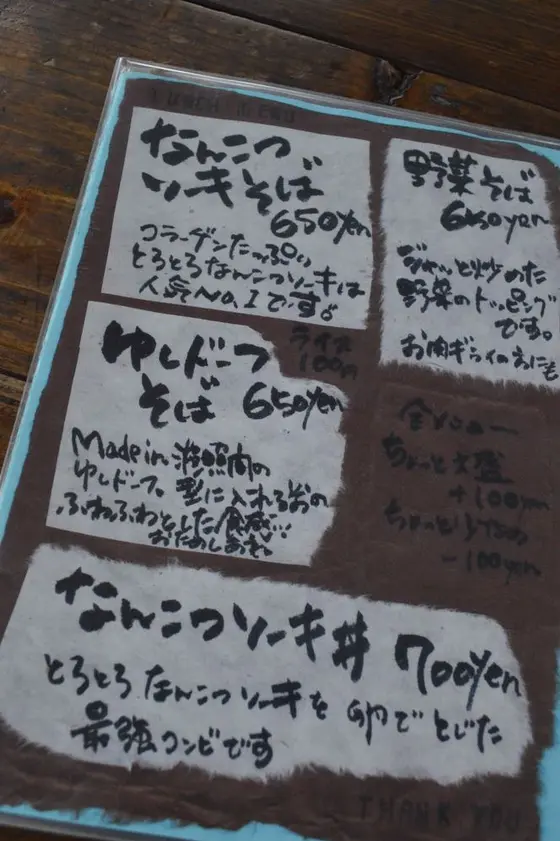 なんこつ
ソーキそば
650yen
コラーゲンたっぷり
とろとろなんこつソーキは
人気No.1です。
野菜そば
650yen
ジャッと炒めた
野菜のトッピング
です。
お肉ギライの方にも
ライス
100yen
ゆしドーフ
そば 650yen
Made in 港川の
ゆしドーフ。型に入れる前の
ふわふわとした食感…
おためしあれ
全メニュー
ちょっと大盛
+100yen
ちょっと少なめ
-100yen
なんこつソーキ丼 700yen
とろとろなんこつソーキを卵でとじた
最強コンビです
THANK YOU